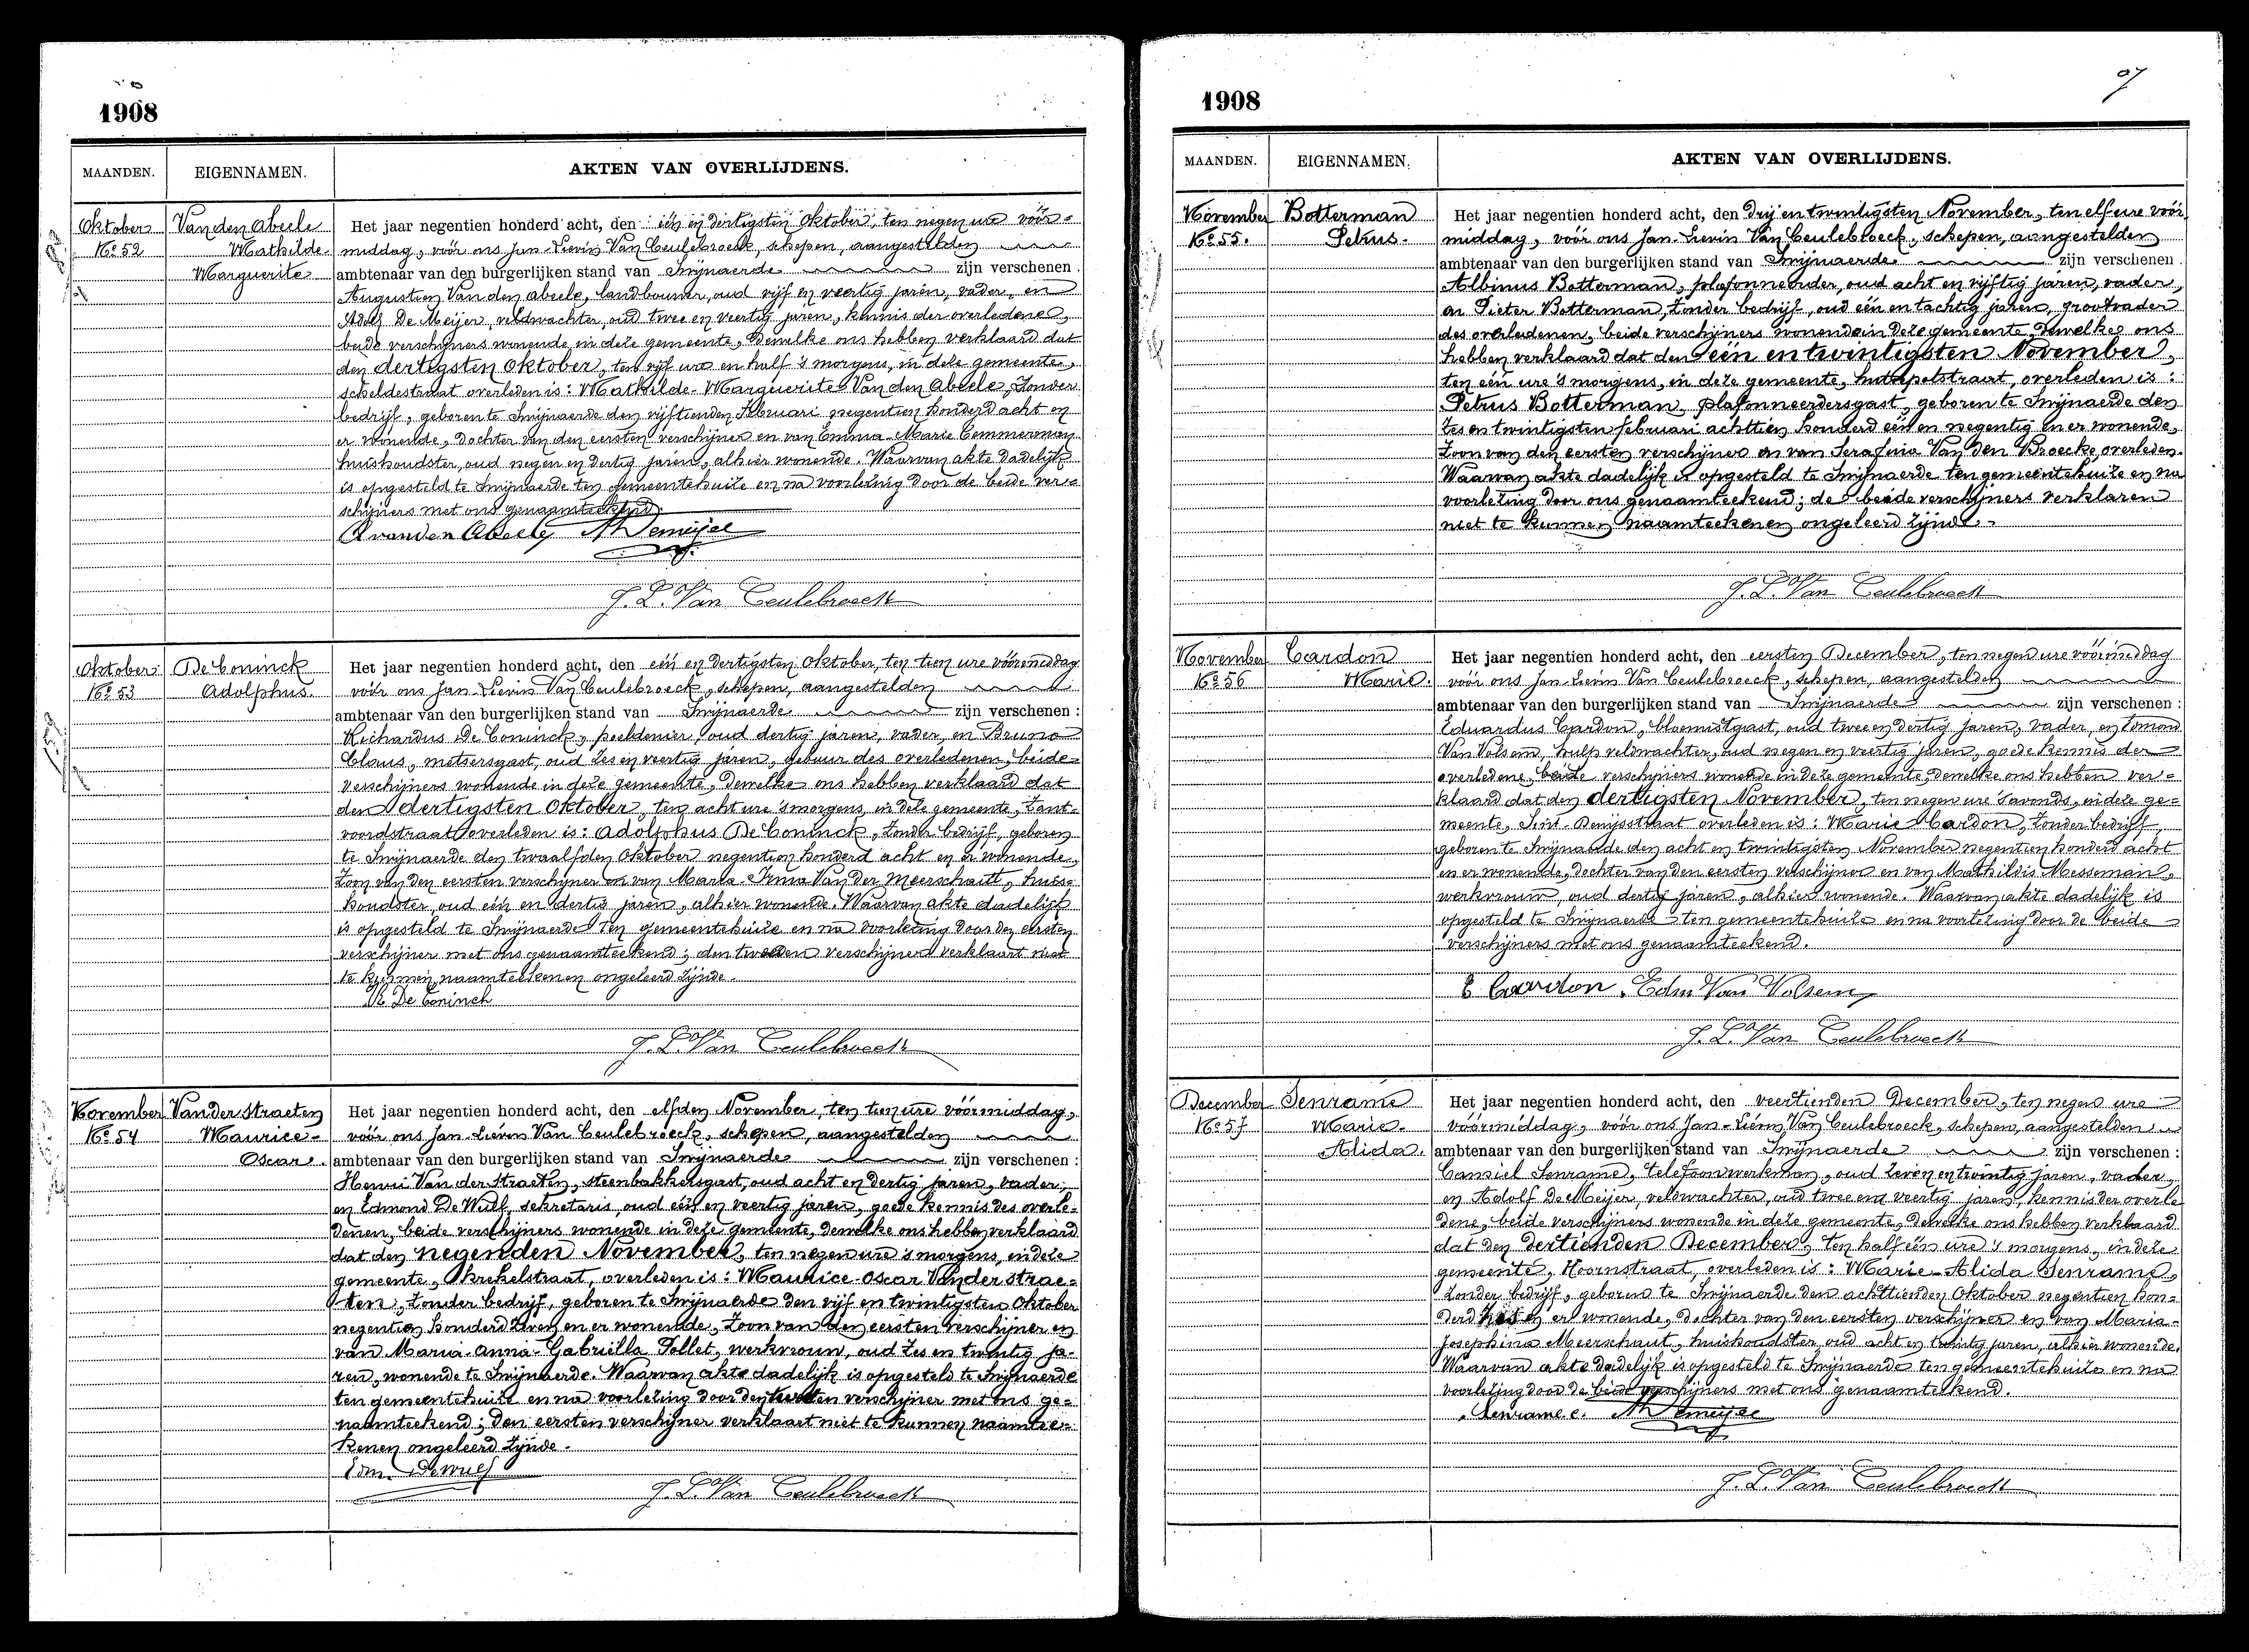 1908
MAANDEN. EIGENNAMEN. AKTEN VAN OVERLIJDENS.
Oktober Van den Abeele Het jaar negentien honderd acht, den één en dertigsten Oktober, ten negen ure vóór-
No 52 Mathilde middag, vóór ons Jan-Lievin Van Ceulebroeck, schepen, aangestelden
Marguerite ambtenaar van den burgerlijken stand van Swijnaerde zijn verschenen :
Augustien Van den Abeele, landbouwer, oud vijf en veertig jaren, vader, en
Adolf De Meijer, veldwachter, oud twee en veertig jaren, kennis der overledene,
beide verschijners wonende in deze gemeente, Dewelke ons hebben verklaard dat
den dertigsten Oktober, ten vijf ure en half 's morgens, in deze gemeente,
scheldestraat overleden is: Mathilde-Marguerite Van den Abeele, zonder
bedrijf, geboren te Swijnaerde den vijftienden Februari negentien honderd acht en
er wonende, dochter van den eersten verschijner en van Emma-Marie Temmerman
huishoudster, oud negen en dertig jaren, alhier wonende. Waarvan akte dadelijk
is opgesteld te Swijnaerde ten gemeentehuize en na voorlezing door de beide ver-
schijners met ons genaamteekend.
A vanden Abeele ADemeijer
J. L. Van Ceulebroeck
Oktober De Coninck Het jaar negentien honderd acht, den één en dertigsten Oktober, ten tien ure vóórmiddag
No 53 Adolphus. vóór ons Jan-Lievin Van Ceulebroeck, schepen, aangestelden
ambtenaar van den burgerlijken stand van Swijnaerde zijn verschenen :
Richardus De Coninck, poeldenier, oud dertig jaren, vader, en Bruno
Claus, metsersgast, oud zes en veertig jaren, gebuur des overledenen, beide
verschijners wonende in deze gemeente, Dewelke ons hebben verklaard dat
den dertigsten Oktober, ten acht ure 's morgens, in deze gemeente, Zant-
voordstraat overleden is: Adolphus De Coninck, zonder bedrijf, geboren
te Swijnaerde den twaalfden Oktober negentien honderd acht en er wonende,
zoon van den eersten verschijner en van Maria-Irma Van der Meerschautt, huis-
houdster, oud één en dertig jaren, alhier wonende. Waarvan akte dadelijk
is opgesteld te Swijnaerde ten gemeentehuize en na voorlezing door den eersten
verschijner met ons genaamteekend; den tweeden verschijner verklaart niet
te kunnen naamteekenen ongeleerd zijnde.
R De Coninck
J. L. Van Ceulebroeck
November Van der Straeten Het jaar negentien honderd acht, den elfden November, ten tien ure vóórmiddag,
No 54 Maurice- vóór ons Jan-Lievin Van Ceulebroeck, schepen, aangestelden
Oscar. ambtenaar van den burgerlijken stand van Swijnaerde zijn verschenen :
Henri Van der Straeten, steenbakkersgast, oud acht en dertig jaren, vader,
en Edmond De Wulf, sekretaris, oud één en veertig jaren, goede kennis des overle-
denen, beide verschijners wonende in deze gemeente, Dewelke ons hebben verklaard
dat den negenden November, ten negen ure 's morgens, in deze
gemeente, Krekelstraat, overleden is: Maurice-Oscar Van der Strae-
ten, zonder bedrijf, geboren te Swijnaerde den vijf en twintigsten Oktober
negentien honderd zeven en er wonende, zoon van den eersten verschijner en
van Maria-Anna-Gabriëlla Pollet, werkvrouw, oud zes en twintig ja-
ren, wonende te Swijnaerde. Waarvan akte dadelijk is opgesteld te Swijnaerde
ten gemeentehuize en na voorlezing door den tweeden verschijner met ons ge-
naamteekend; den eersten verschijner verklaart niet te kunnen naamtee-
kenen ongeleerd zijnde.
Edm. Dewulf
J. L. Van Ceulebroeck
1908
MAANDEN. EIGENNAMEN. AKTEN VAN OVERLIJDENS.
November Botterman Het jaar negentien honderd acht, den drij en twintigsten November, ten elf ure vóór
No 55. Petrus. middag, vóór ons Jan-Lievin Van Ceulebroeck, schepen, aangestelden
ambtenaar van den burgerlijken stand van Swijnaerde zijn verschenen
Albinus Botterman, plafonneerder, oud acht en vijftig jaren, vader,
en Pieter Botterman, zonder bedrijf, oud één en tachtig jaren, grootvader
des overledenen, beide verschijners wonende in deze gemeente, Dewelke ons
hebben verklaard dat den één en twintigsten November,
ten één ure 's morgens, in deze gemeente, Hutsepotstraat, overleden is :
Petrus Botterman, plafonneerdersgast, geboren te Swijnaerde den
zes en twintigsten februari achttien honderd één en negentig en er wonende,
zoon van den eersten verschijner en van Serafina Van Den Broecke, overleden.
Waarvan akte dadelijk is opgesteld te Swijnaerde ten gemeentehuize en na
voorlezing door ons genaamteekend; de beide verschijners verklaren
niet te kunnen naamteekenen ongeleerd zijnde.-
J. L. Van Ceulebroeck
November Cardon Het jaar negentien honderd acht, den eersten December, ten negen ure vóórmiddag
No 56 Marie. vóór ons Jan-Lievin Van Ceulebroeck, schepen, aangestelden
ambtenaar van den burgerlijken stand van Swijnaerde zijn verschenen :
Eduardus Cardon, bloemistgast, oud twee en dertig jaren, vader, en Edmond
Van Volsem, hulp veldwachter, oud negen en veertig jaren, goede kennis der
overledene, beide verschijners wonende in deze gemeente, dewelke ons hebben ver-
klaard dat den dertigsten November, ten negen ure 's avonds, in deze ge-
meente, Sint-Denijsstraat overleden is: Marie Cardon, zonder bedrijf,
geboren te Swijnaerde den acht en twintigsten November negentien honderd acht
en er wonende, dochter van den eersten verschijner en van Mathildis Messeman,
werkvrouw, oud dertig jaren, alhier wonende. Waarvan akte dadelijk is
opgesteld te Swijnaerde ten gemeentehuize en na voorlezing door de beide
verschijners met ons genaamteekend.
E Cardon. Edm Van Volsem
J. L. Van Ceulebroeck
December Senrame Het jaar negentien honderd acht, den veertienden December, ten negen ure
No 57 Marie- vóórmiddag, vóór ons Jan-Lievin Van Ceulebroeck, schepen, aangestelden
Alida. ambtenaar van den burgerlijken stand van Swijnaerde zijn verschenen :
Camiel Senrame, telefoonwerkman, oud zeven en twintig jaren, vader,
en Adolf De Meijer, veldwachter, oud twee en veertig jaren, kennis der overle
dene, beide verschijners wonende in deze gemeente, Dewelke ons hebben verklaard
dat den dertienden December, ten half één ure 's morgens, in deze
gemeente, Hoornstraat, overleden is: Marie-Alida Senrame,
zonder bedrijf, geboren te Swijnaerde den achttienden Oktober negentien hon-
derd en er wonende, dochter van den eersten verschijner en van Maria-
Josephina Meerschaut, huishoudster oud acht en twintig jaren, alhier wonende.
Waarvan akte dadelijk is opgesteld te Swijnaerde ten gemeentehuize en na
voorlezing door de beide verschijners met ons genaamteekend.
Senrame c. ADemeijer
J. L. Van Ceulebroeck